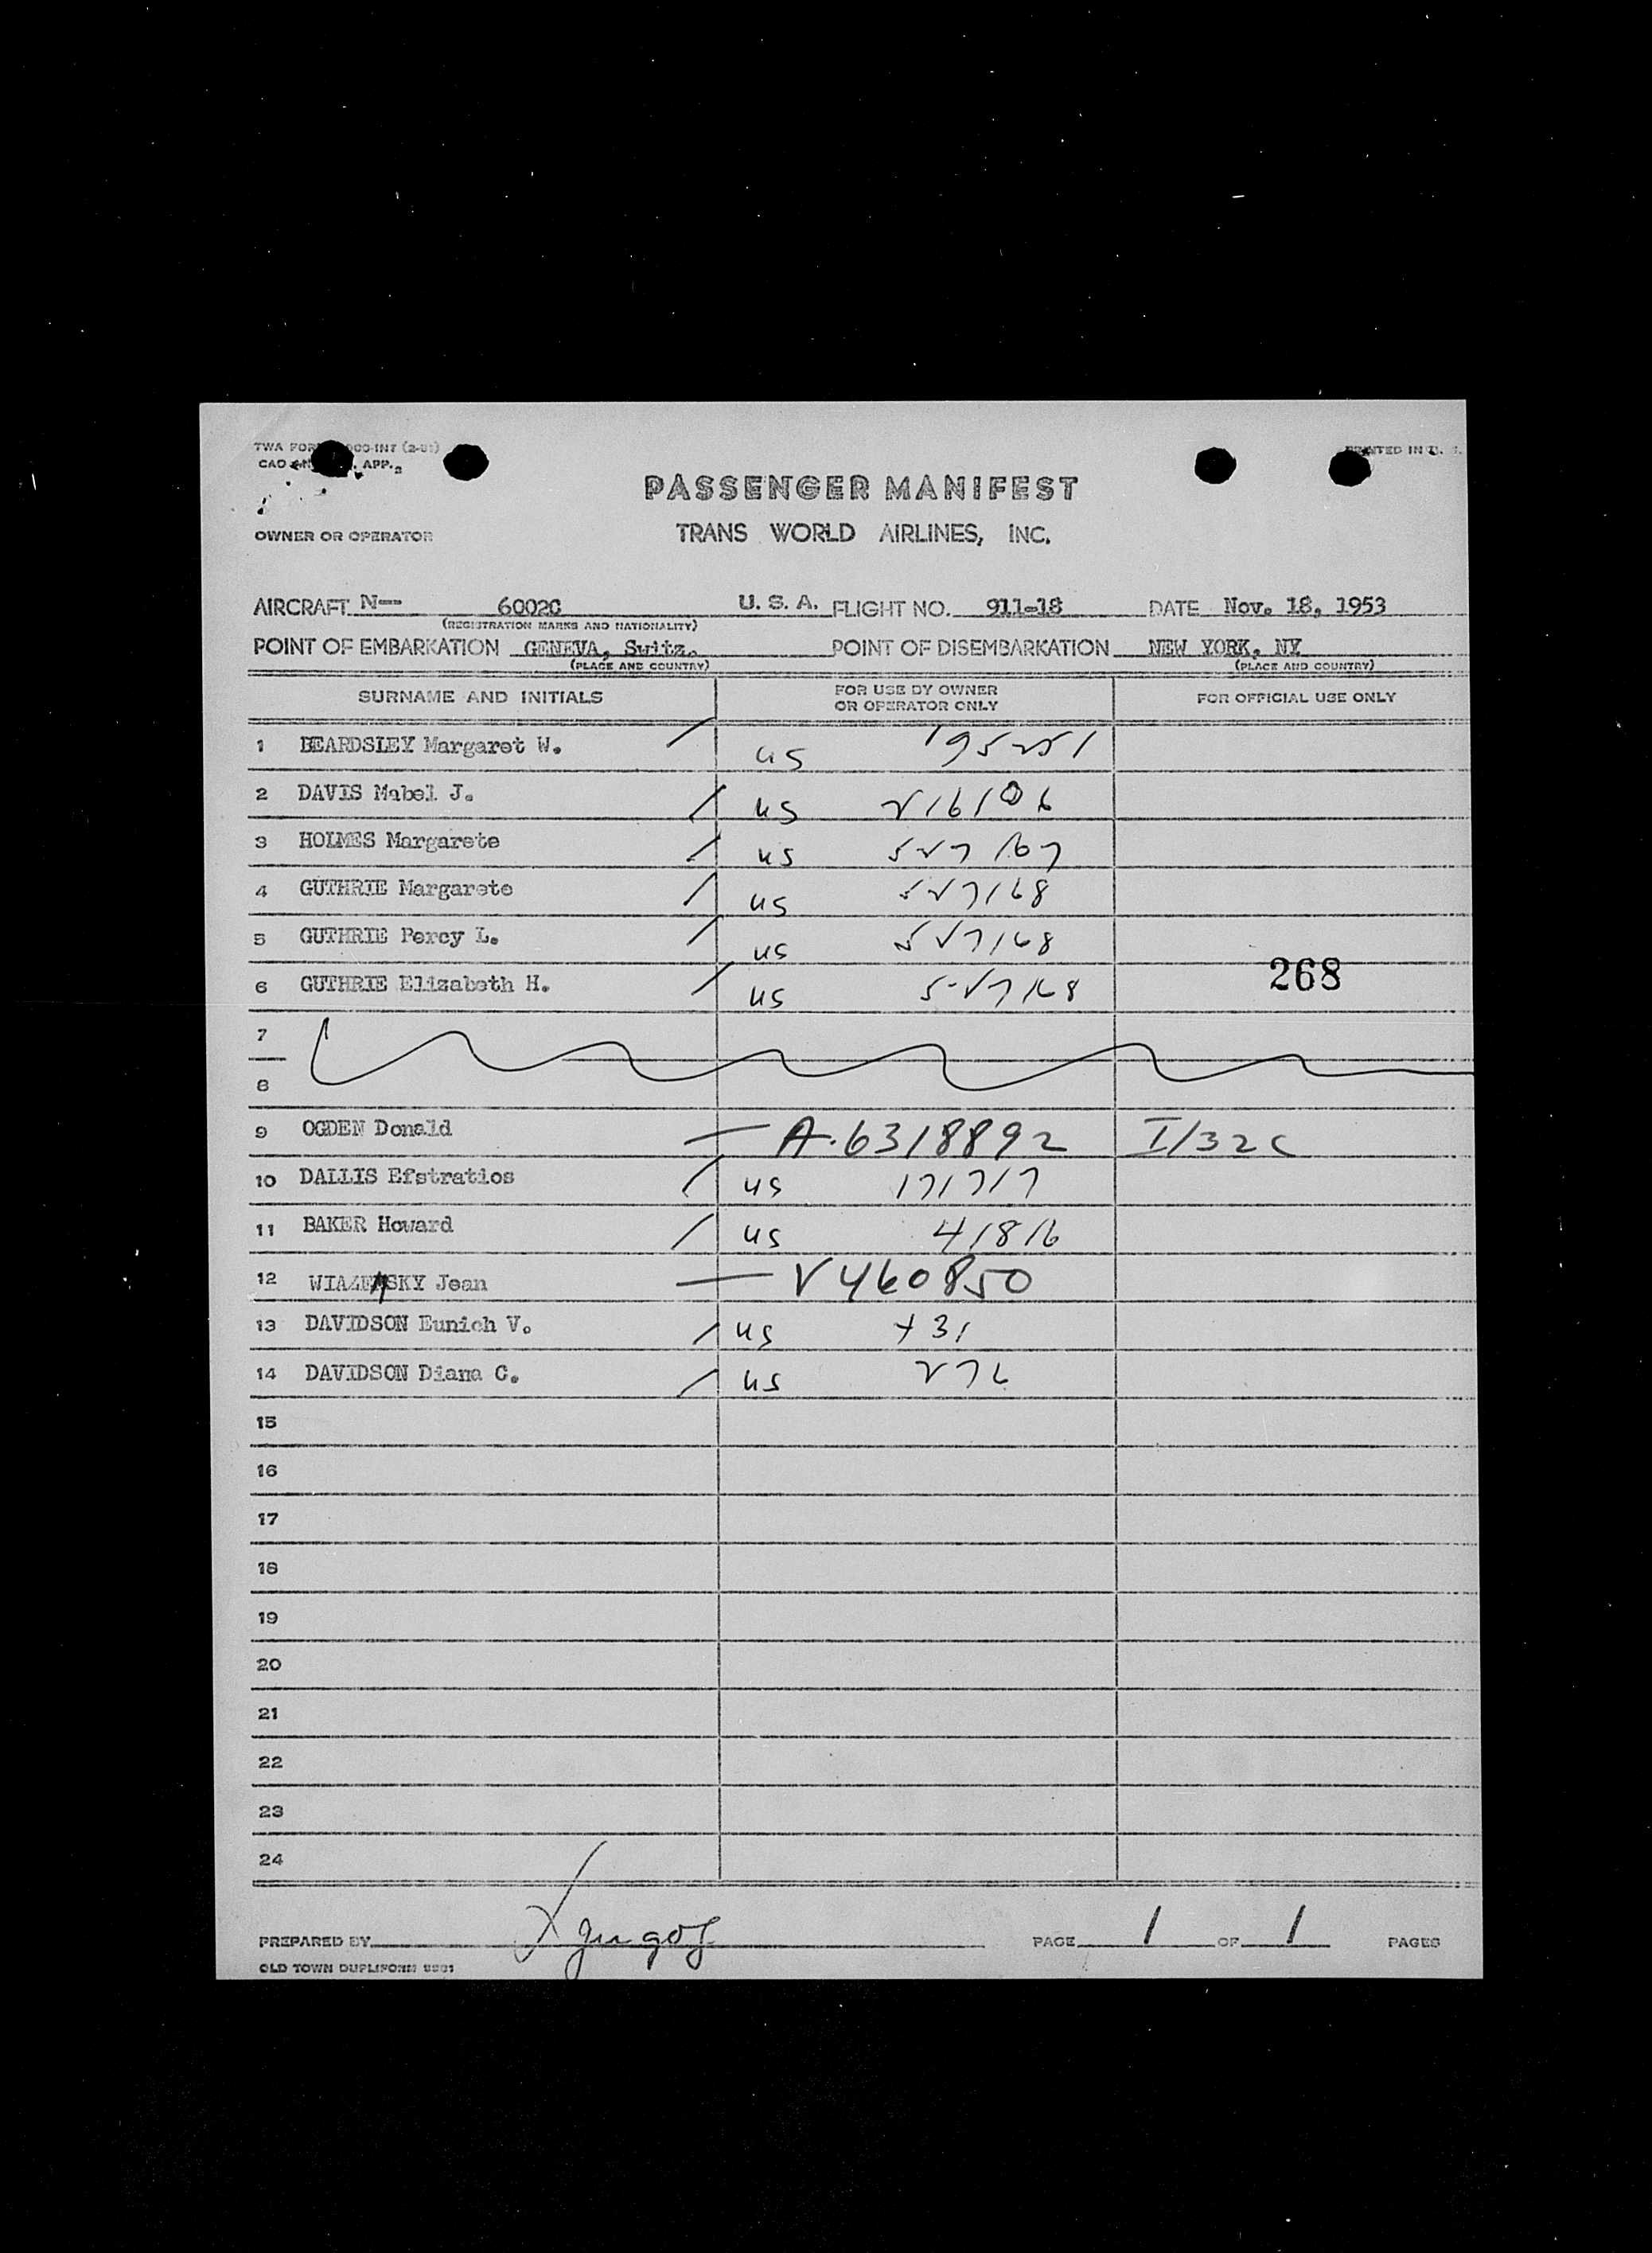 PASSENGER MANIFEST
OWNER OR OPERATOR TRANS WORLD AIRLINES, INC.
AIRCRAFT N-- 6002C U. S. A. FLIGHT NO. 911-18 DATE Nov. 18, 1953
(REGISTRATION MARKS AND NATIONALITY)
POINT OF EMBARKATION GENEVA, Switz. POINT OF DISEMBARKATION NEW YORK, NY
(PLACE AND COUNTRY) (PLACE AND COUNTRY)
SURNAME AND INITIALS FOR USE BY OWNER OR OPERATOR ONLY FOR OFFICIAL USE ONLY
1 BEARDSLEY Margaret W. us 195251
2 DAVIS Mabel J. us 216106
3 HOLMES Margarete us 527167
4 GUTHRIE Margarete us 527168
5 GUTHRIE Percy L. us 527168
6 GUTHRIE Elizabeth H. us 527168 268
7
8
9 OGDEN Donald A-6318892 I/32C
10 DALLIS Efstratios us 171717
11 BAKER Howard us 41816
12 WIAZEMSKY Jean V460850
13 DAVIDSON Eunich V. us 731
14 DAVIDSON Diana C. us 276
15
16
17
18
19
20
21
22
23
24
PREPARED BY PAGE 1 OF 1 PAGES
OLD TOWN DUPLIFORM